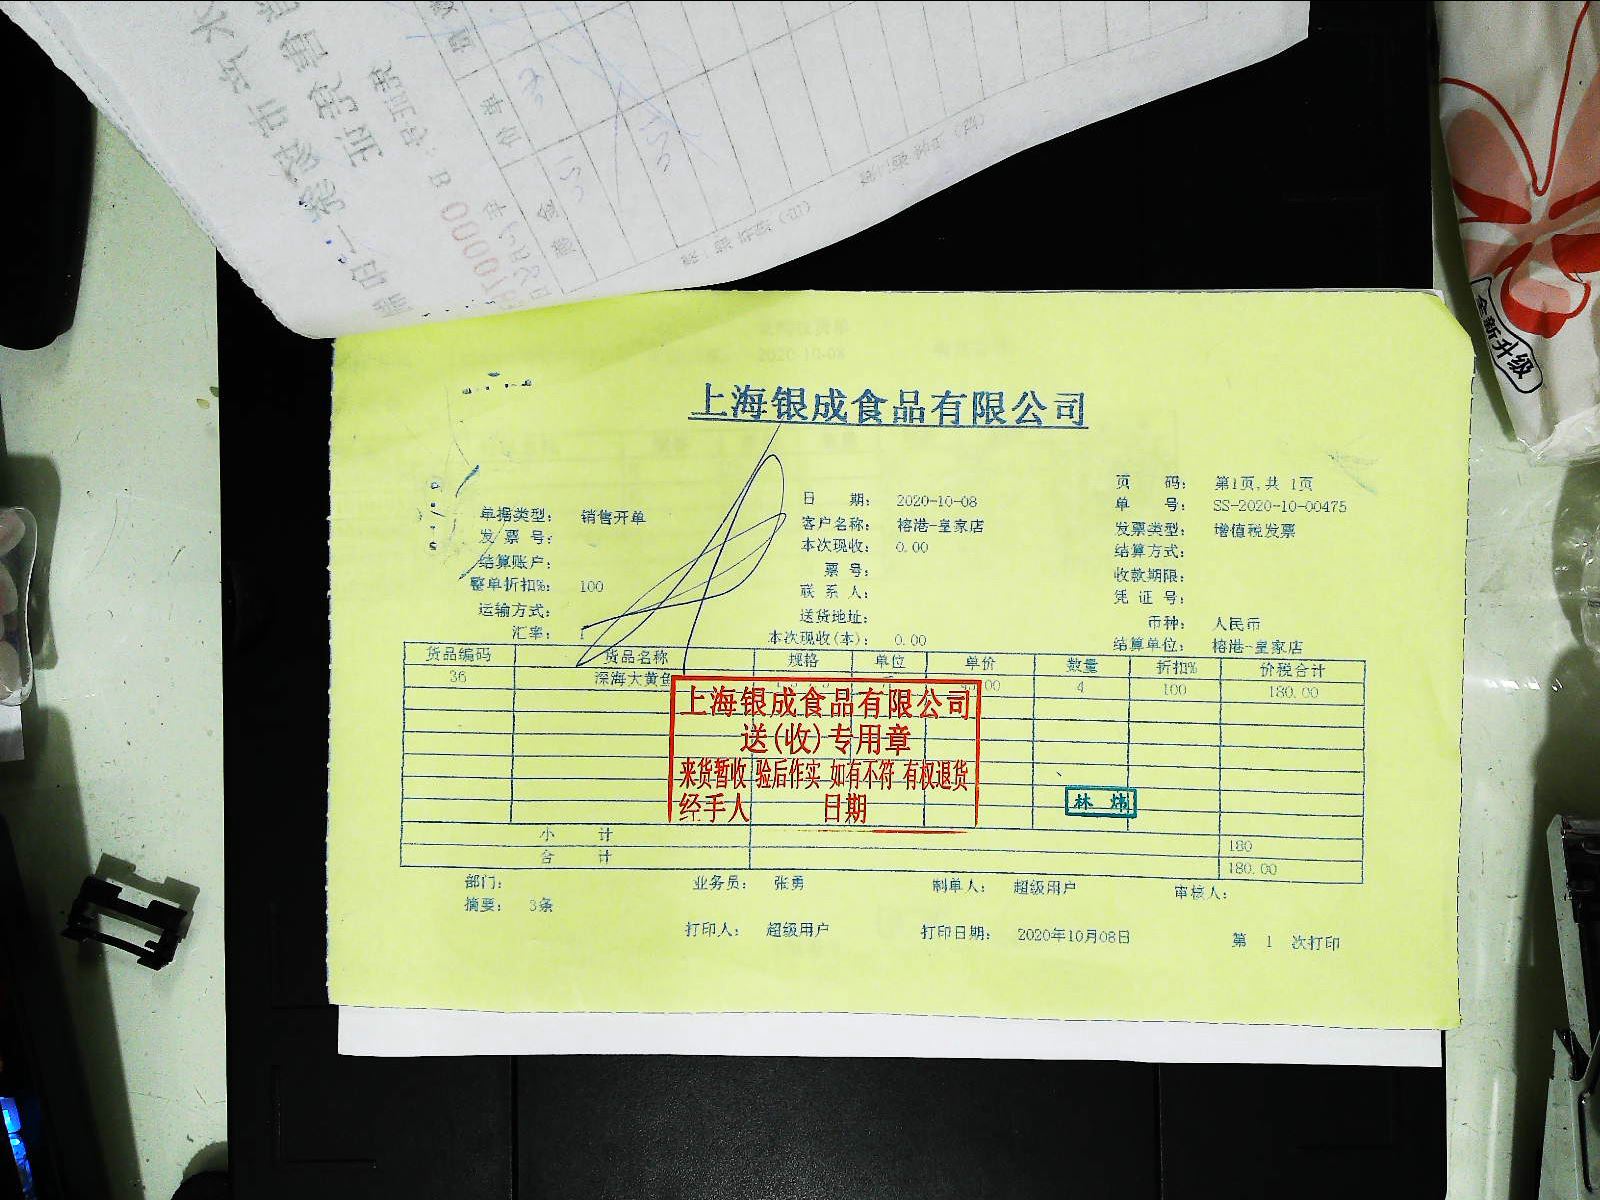 全新升级
上海银成食品有限公司
单据类型： 销售开单
日 期： 2020-10-08
页 码： 第1页,共 1页
发 票 号：
客户名称： 榕港-皇家店
单 号： SS-2020-10-00475
结算账户：
本次现收： 0.00
发票类型： 增值税发票
整单折扣%： 100
票 号：
结算方式：
运输方式：
联 系 人：
收款期限：
汇率： 1
送货地址：
凭 证 号：
本次现收(本)： 0.00
币种： 人民币
结算单位： 榕港-皇家店
货品编码 货品名称 规格 单位 单价 数量 折扣% 价税合计
36 深海大黄鱼 4 100 180.00
上海银成食品有限公司
送(收)专用章
来货暂收 验后作实 如有不符 有权退货
经手人 日期
林 炜
小 计 180
合 计 180.00
部门： 业务员： 张勇 制单人： 超级用户 审核人：
摘要： 3条
打印人： 超级用户 打印日期： 2020年10月08日 第 1 次打印